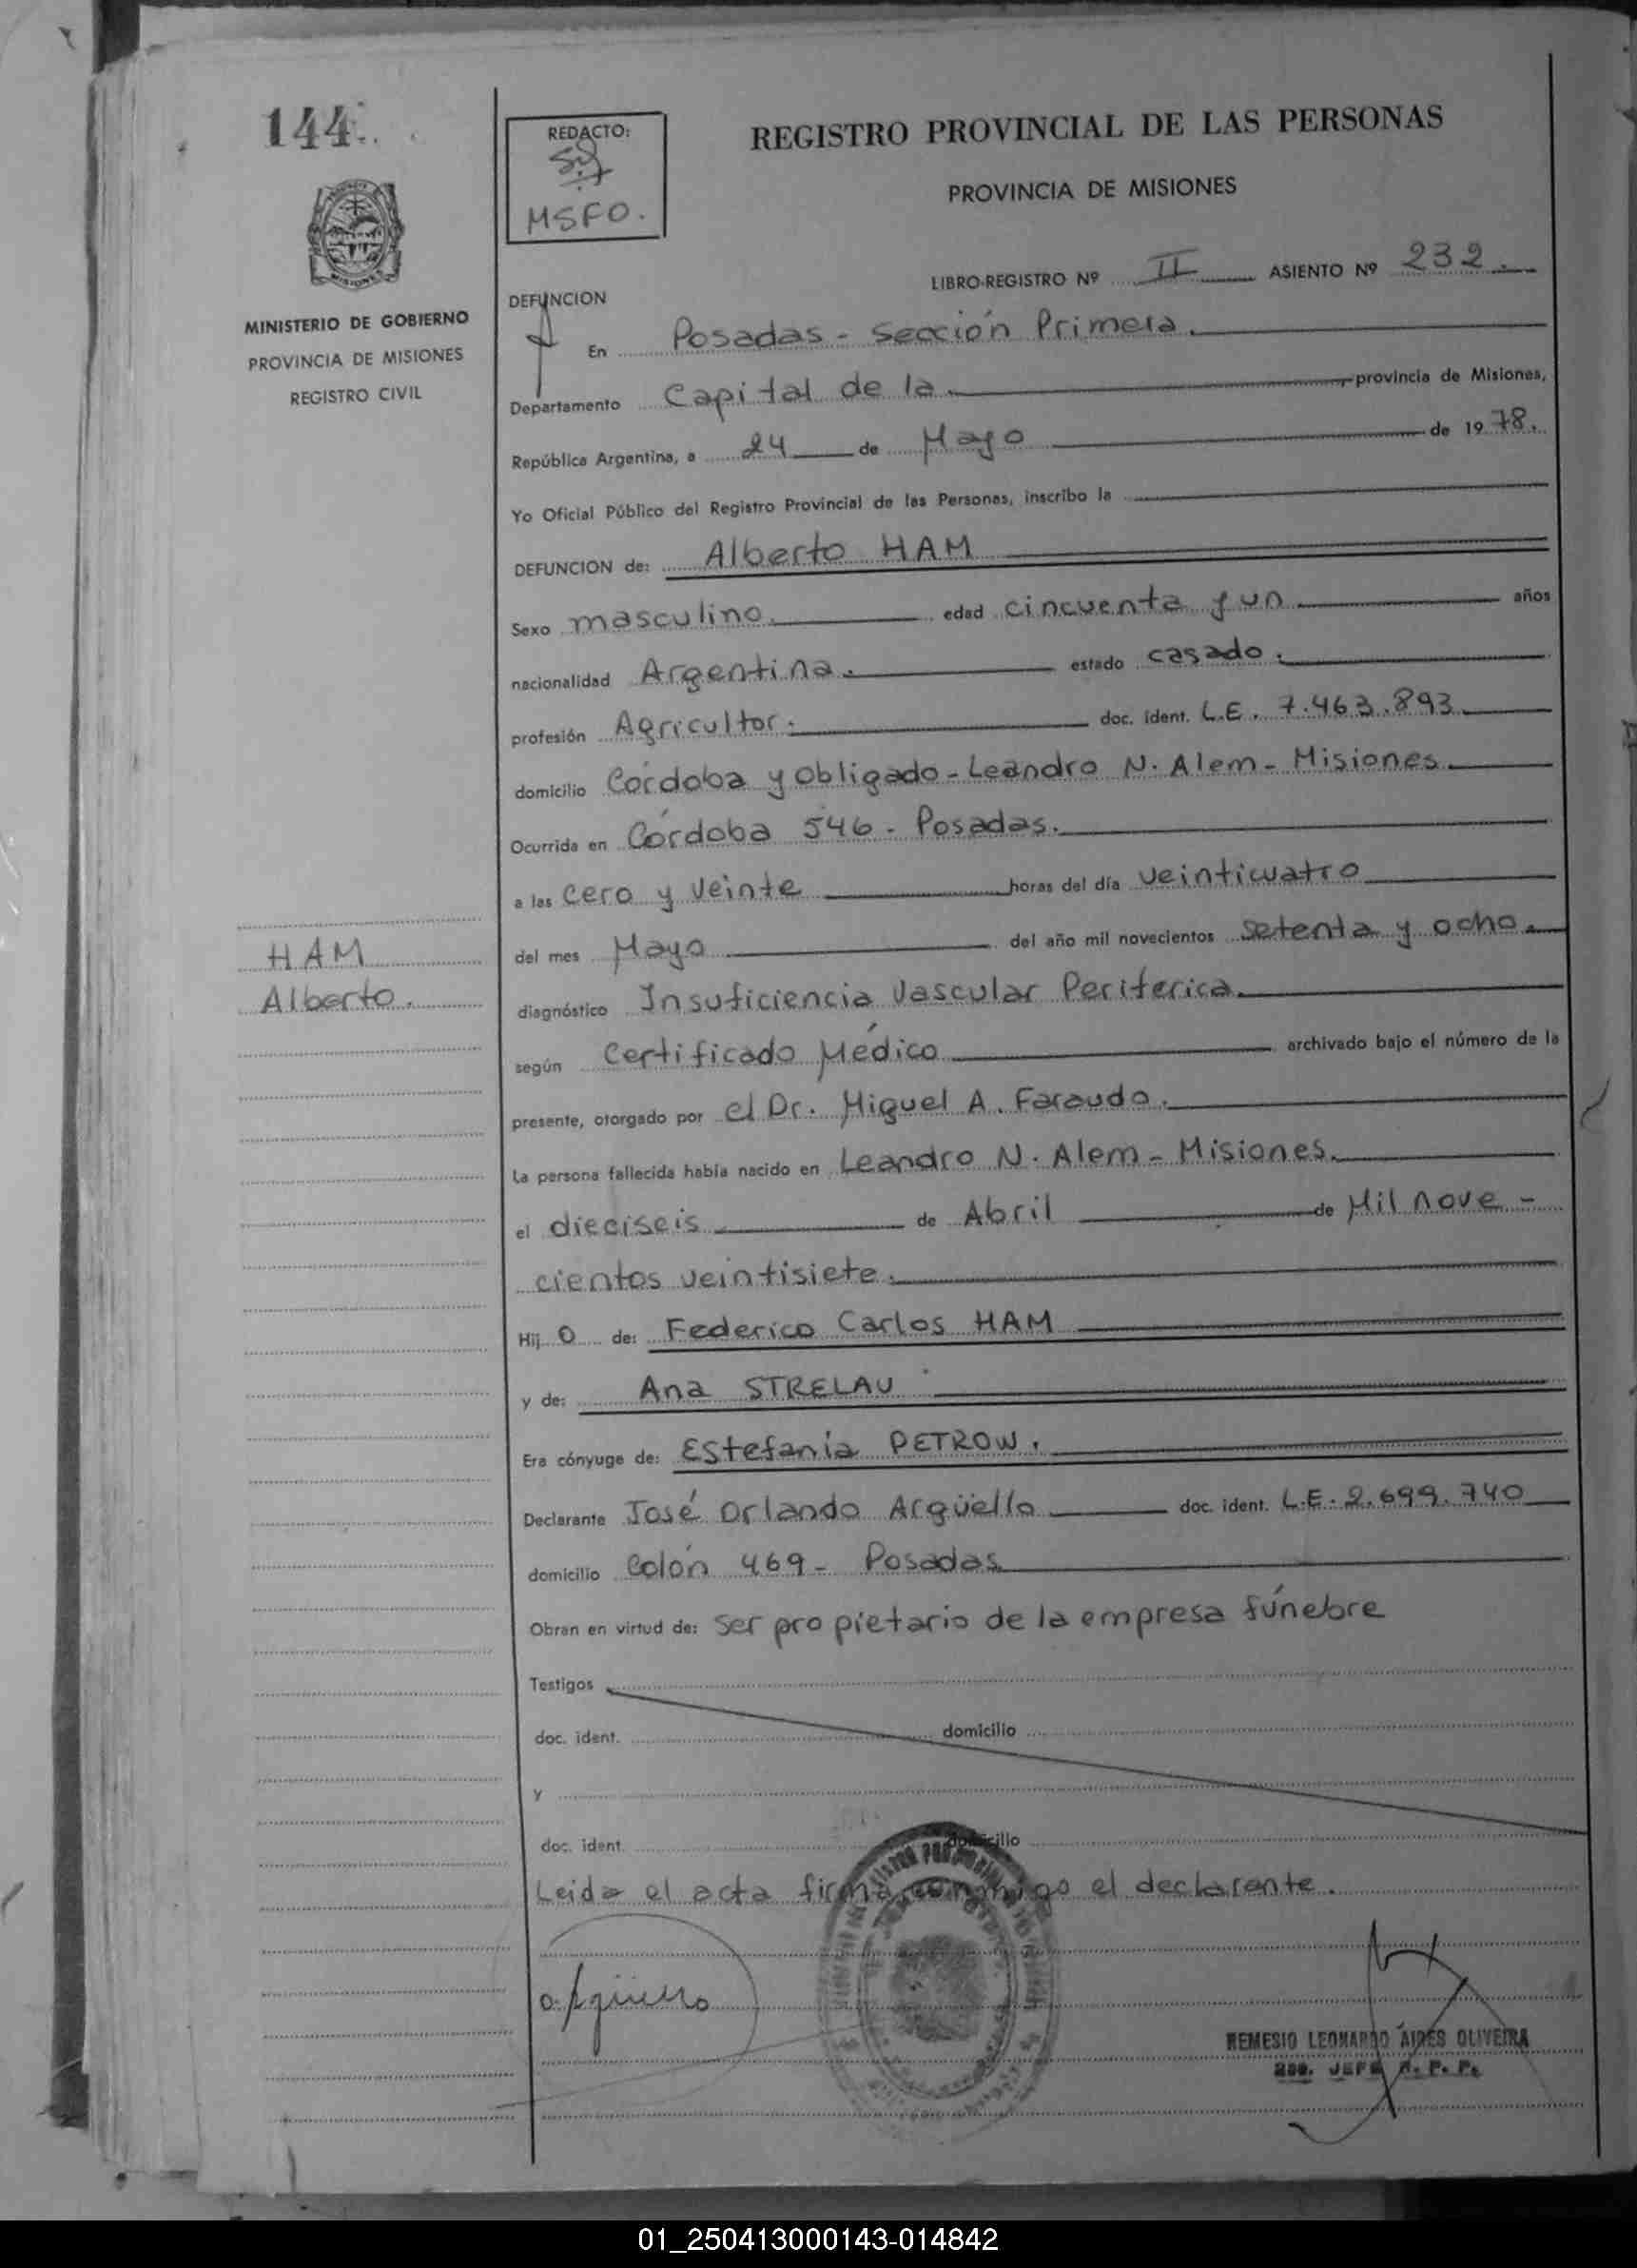 144
REDACTO:
MSFO.
REGISTRO PROVINCIAL DE LAS PERSONAS
PROVINCIA DE MISIONES
LIBRO-REGISTRO Nº II ASIENTO Nº 232.
MINISTERIO DE GOBIERNO
PROVINCIA DE MISIONES
REGISTRO CIVIL
DEFUNCION
En Posadas - Sección Primera.
Departamento Capital de la provincia de Misiones,
República Argentina, a 24 de Mayo de 1978.
Yo Oficial Público del Registro Provincial de las Personas, inscribo la
DEFUNCION de: Alberto HAM
Sexo masculino. edad cincuenta y un años
nacionalidad Argentina. estado casado.
profesión Agricultor. doc. ident. L.E. 7.463.893
domicilio Córdoba y Obligado - Leandro N. Alem - Misiones.
Ocurrida en Córdoba 546 - Posadas.
a las Cero y Veinte horas del día Veinticuatro
del mes Mayo del año mil novecientos setenta y ocho.
HAM
Alberto.
diagnóstico Insuficiencia Vascular Periferica.
según Certificado Médico archivado bajo el número de la
presente, otorgado por el Dr. Miguel A. Faraudo.
La persona fallecida había nacido en Leandro N. Alem - Misiones.
el dieciseis de Abril de Mil nove -
cientos veintisiete.
Hijo de: Federico Carlos HAM
y de: Ana STRELAU
Era cónyuge de: Estefanía PETROW.
Declarante José Orlando Argüello doc. ident. L.E. 2.699.740
domicilio Colón 469 - Posadas
Obran en virtud de: ser propietario de la empresa fúnebre
Testigos
doc. ident. domicilio
y
doc. ident. domicilio
Leida el acta firma conmigo el declarente.
O. Argüello
REMESIO LEONARDO AIRES OLIVEIRA
2do. JEFE R. P. P.
01_250413000143-014842